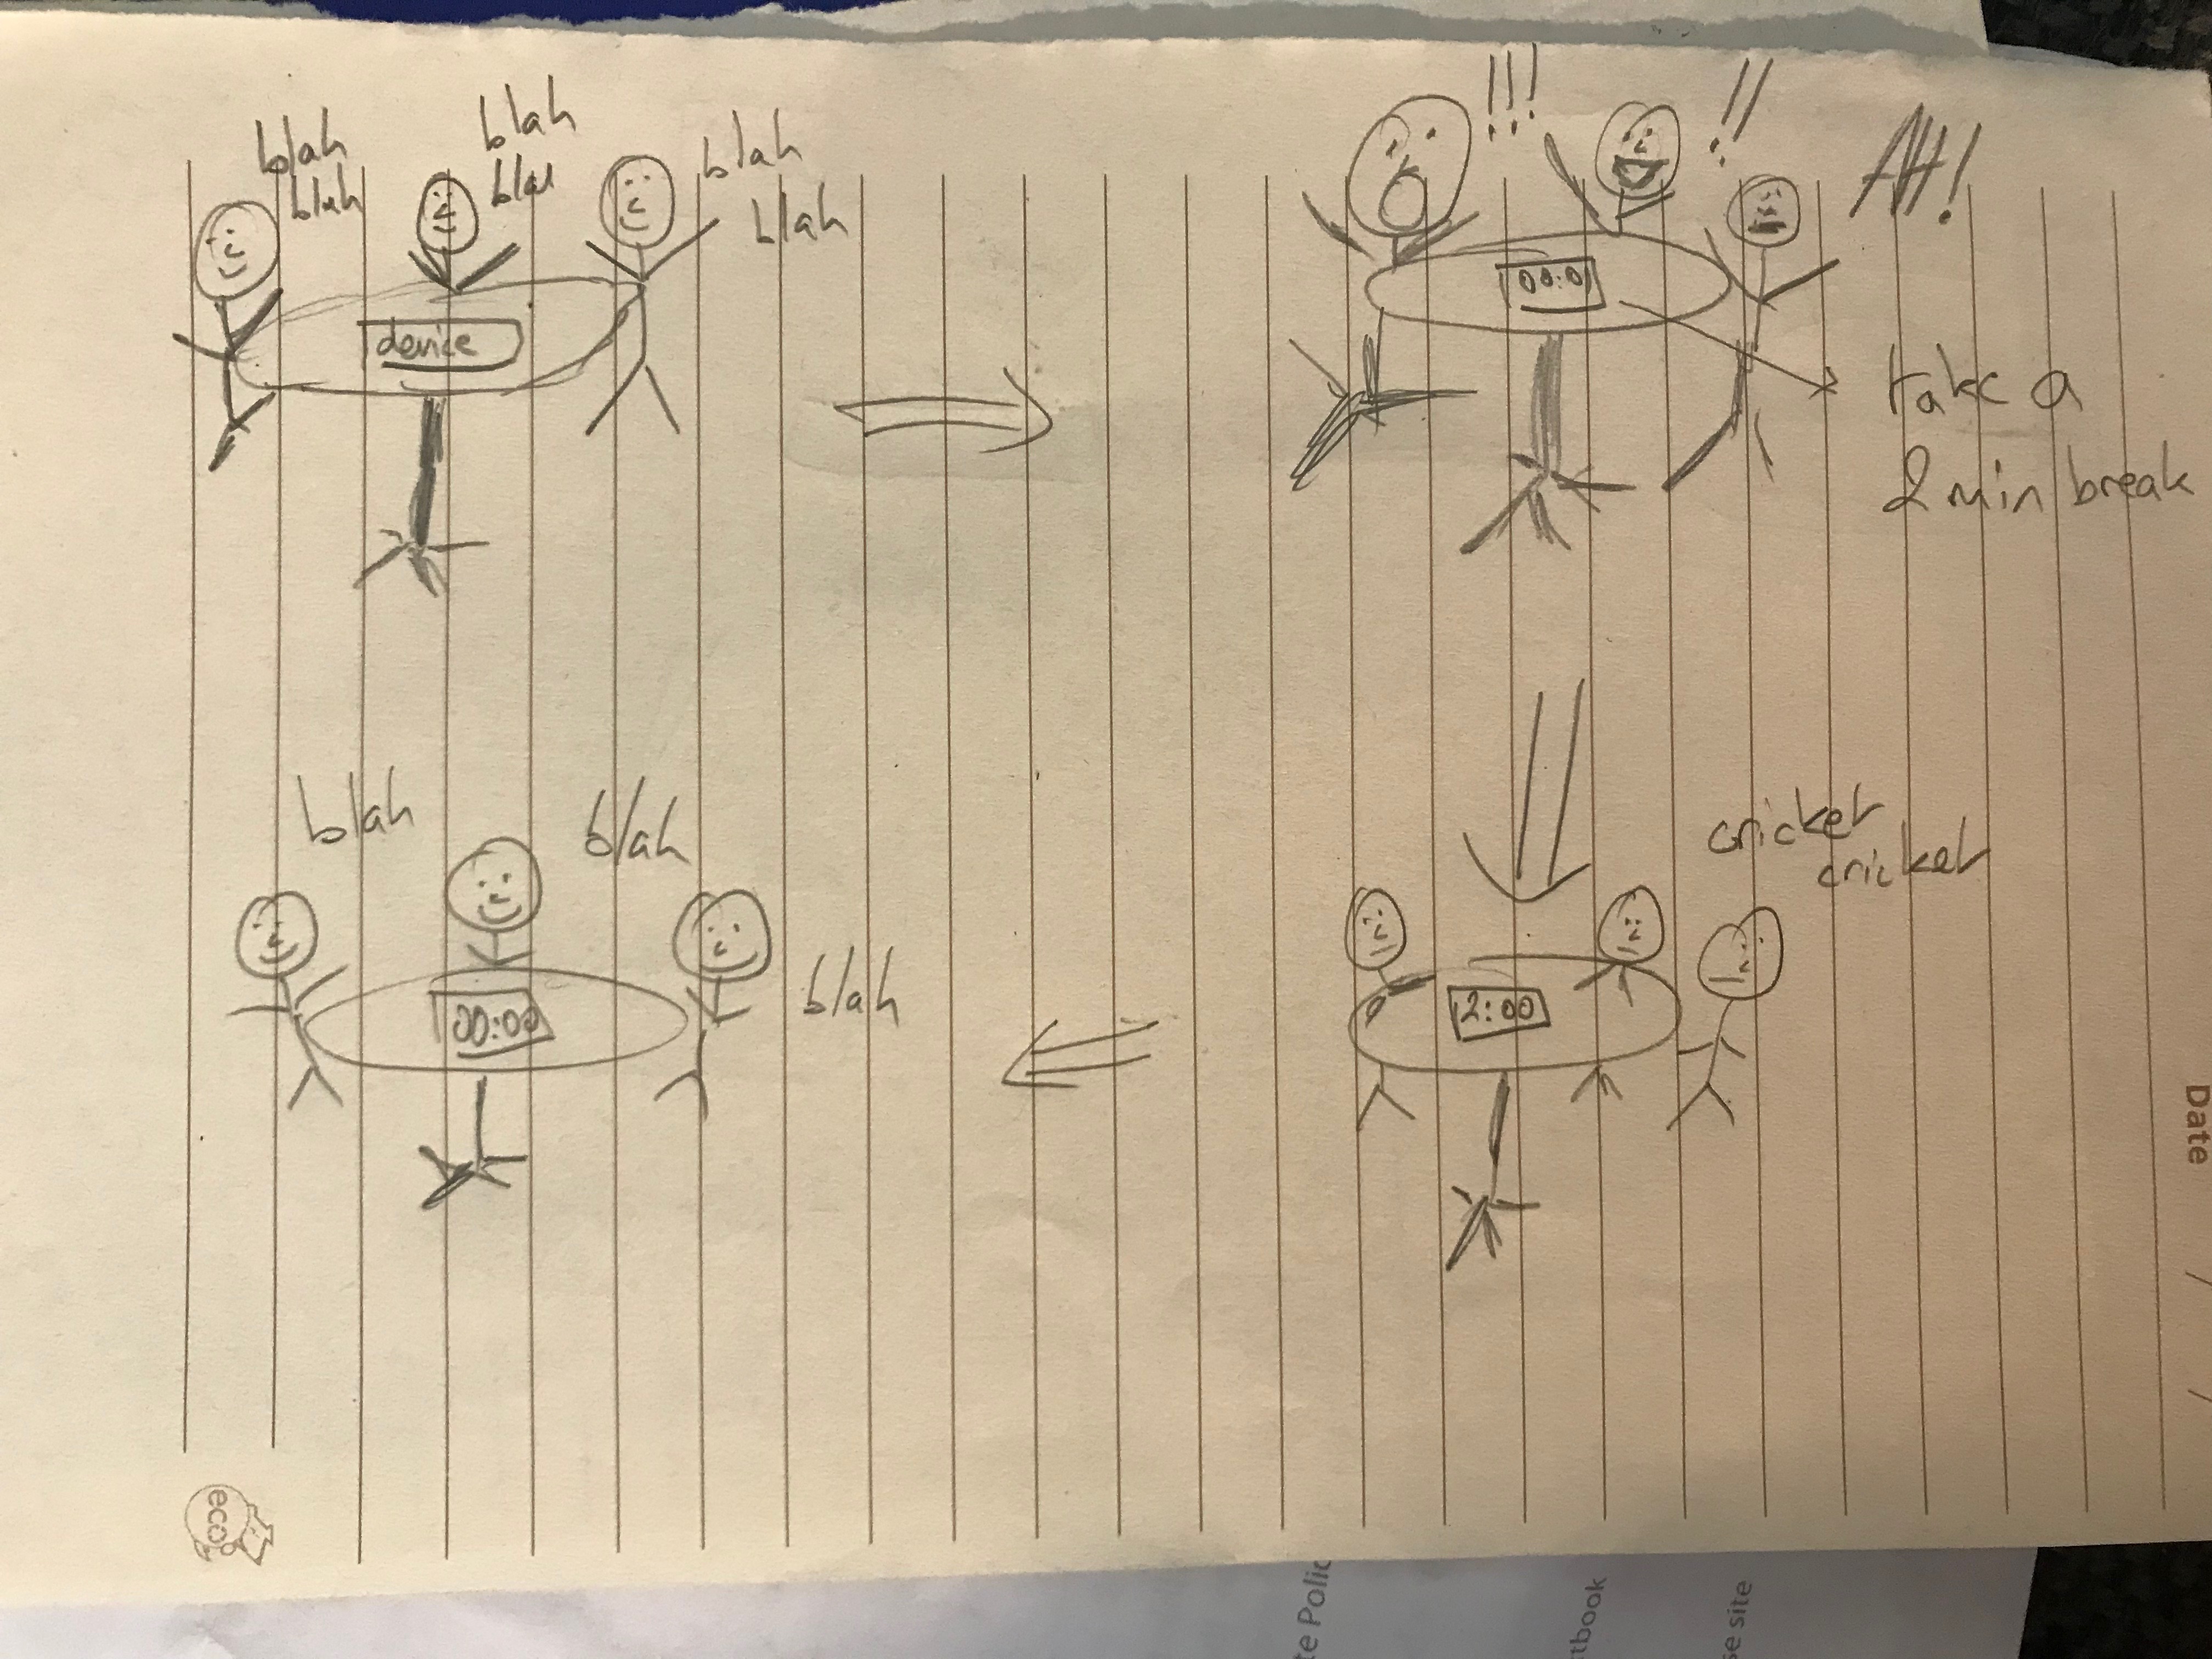 blah
blah
blah
bla
blah
blah
device
!!!
!!
AH!
00:0
take a
2 min break
cricket
cricket
2:00
blah
blah
blah
00:00
Date / /
eco
te Polic
tbook
se site